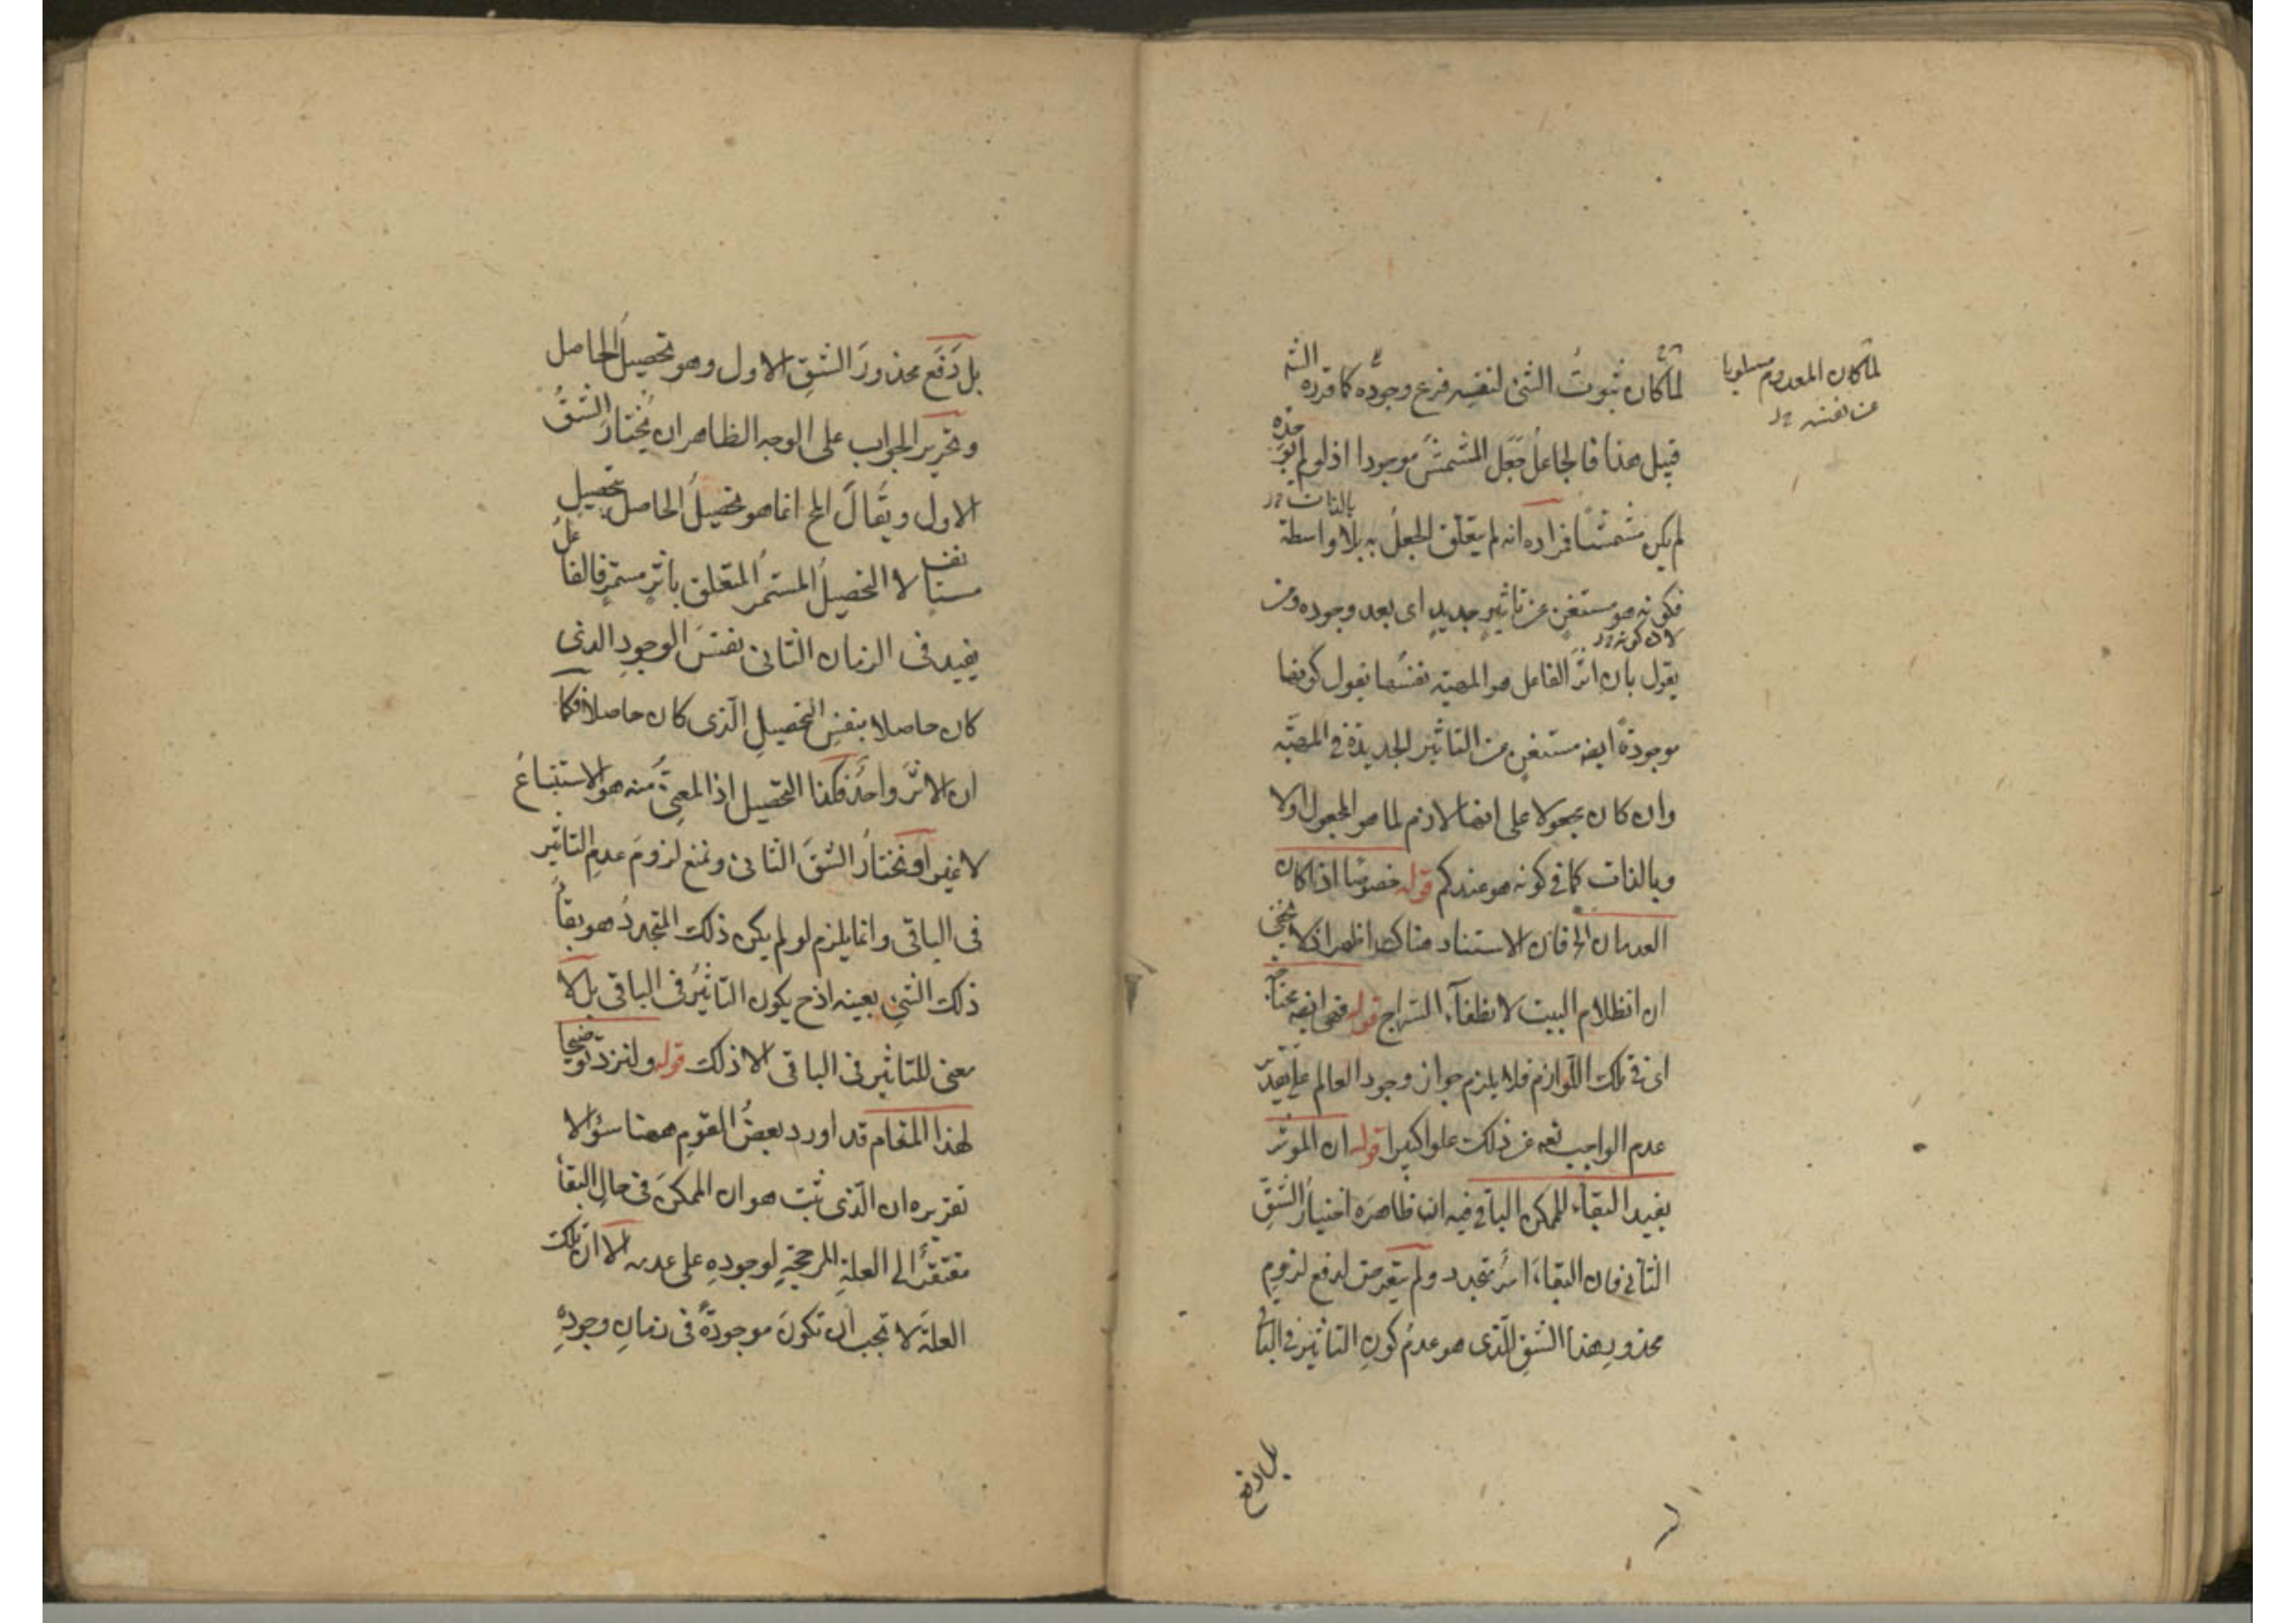 لما كان ثبوتُ الشئ لنفسه فرع وجوده كما قرره الشه
قبيل هذا فالجاعلُ جَعَل المشمشَ موجودا اذ لو لم يوجده
لم يكن مشمشا فمراده انه لم يتعلق الجعلُ به بلا واسطة
بالذات
فكونه هو مستغنٍ عن تاثيرٍ جديدٍ اى بعد وجوده ومن
لان كونه
يقول بان اثرَ الفاعل هو المهية نفسُها يقول كونها
موجودةً ايضه مستغنٍ من التاثير الجديد فى المهيّه
وان كان مجعولا على انها لازم لما هو المجعول اولا
وبالذات كما فى كونه هو عندكم قوله خصوصًا اذا كان
العدمان الخ فان الاستناد هناك اظهر اذ لا يخفى
ان انظلام البيت لانطفآء السّراج قوله فهى ايضه محتاجة
اى فى تلك اللّوازم فلا يلزم جواز وجود العالم على تقدير
عدم الواجب تعه عن ذلك علوا كبيرا قوله ان الموثر
يفيد البقآء للممكن الباقى فيه ان ظاهرَه اختيارُ الشقِّ
الثانى فان البقاءَ امرٌ متجدد ولم يتعرض لدفع لزوم
محذورِ هذا الشقِ الّذى هو عدمُ كونِ التاثير فى الباقى
بل دفع
لما كان المعدوم مسلوبا
عن نفسه
بل دَفَع محذورَ الشقِ الاول وهو تحصيلُ الحاصل
وتحرير الجواب على الوجه الظاهر ان يُختارَ الشقُّ
الاول ويقالَ المح انما هو تحصيلُ الحاصل بتحصيلٍ
مستانف لا التحصيلُ المستمرُ المتعلق باثرٍ مستمرٍ فالفاعلُ
يفيد فى الزمان الثانى نفسَ الوجودِ الذى
كان حاصلا بنفسِ التحصيلِ الّذى كان حاصلا فكما
ان الاثرَ واحدٌ فكذا التحصيل اذ المعنىّ منه هو الاستتباعُ
لا غير او نختارُ الشقَّ الثانى ونمنع لزومَ عدمِ التاثير
فى الباقى وانما يلزم لو لم يكن ذلك المتجددُ هو بقاءُ
ذلك الشئِ بعينه اذ ح يكون التّاثيرُ فى الباقى بل لا
معنى للتاثير فى الباقى الا ذلك قوله ولنزد توضيحا
لهذا المقام قد اورد بعضُ القوم ههنا سؤالا
تقريره ان الّذى ثبت هو ان الممكنَ فى حالِ البقآء
مفتقرٌ الى العلةِ المرجحةِ لوجودهِ على عدمه الا ان تلك
العلةَ لا تجب ان تكونَ موجودةً فى زمانِ وجودهِ